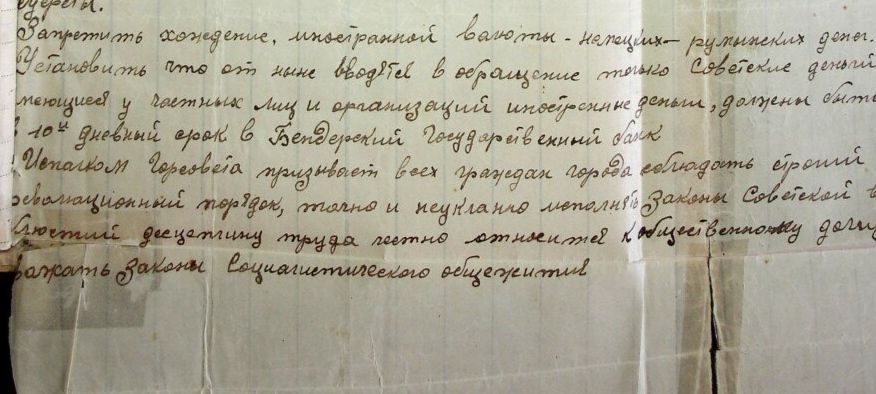 Запретить хождение, иностранной валюты - немецких - румынских денег.
Установить что от ныне вводятся в обращение только Советские деньги
меющиеся у частных лиц и организаций иностранные деньги, должны быть
10ти дневный срок в Бендерский Государственный банк
Исполком Горсовета призывает всех граждан города соблюдать строгий
революционный порядок, точно и неукланно исполнять Законы Советской в
десцеплину труда честно относится к общественному долгу
важать Законы Социалистического общежития